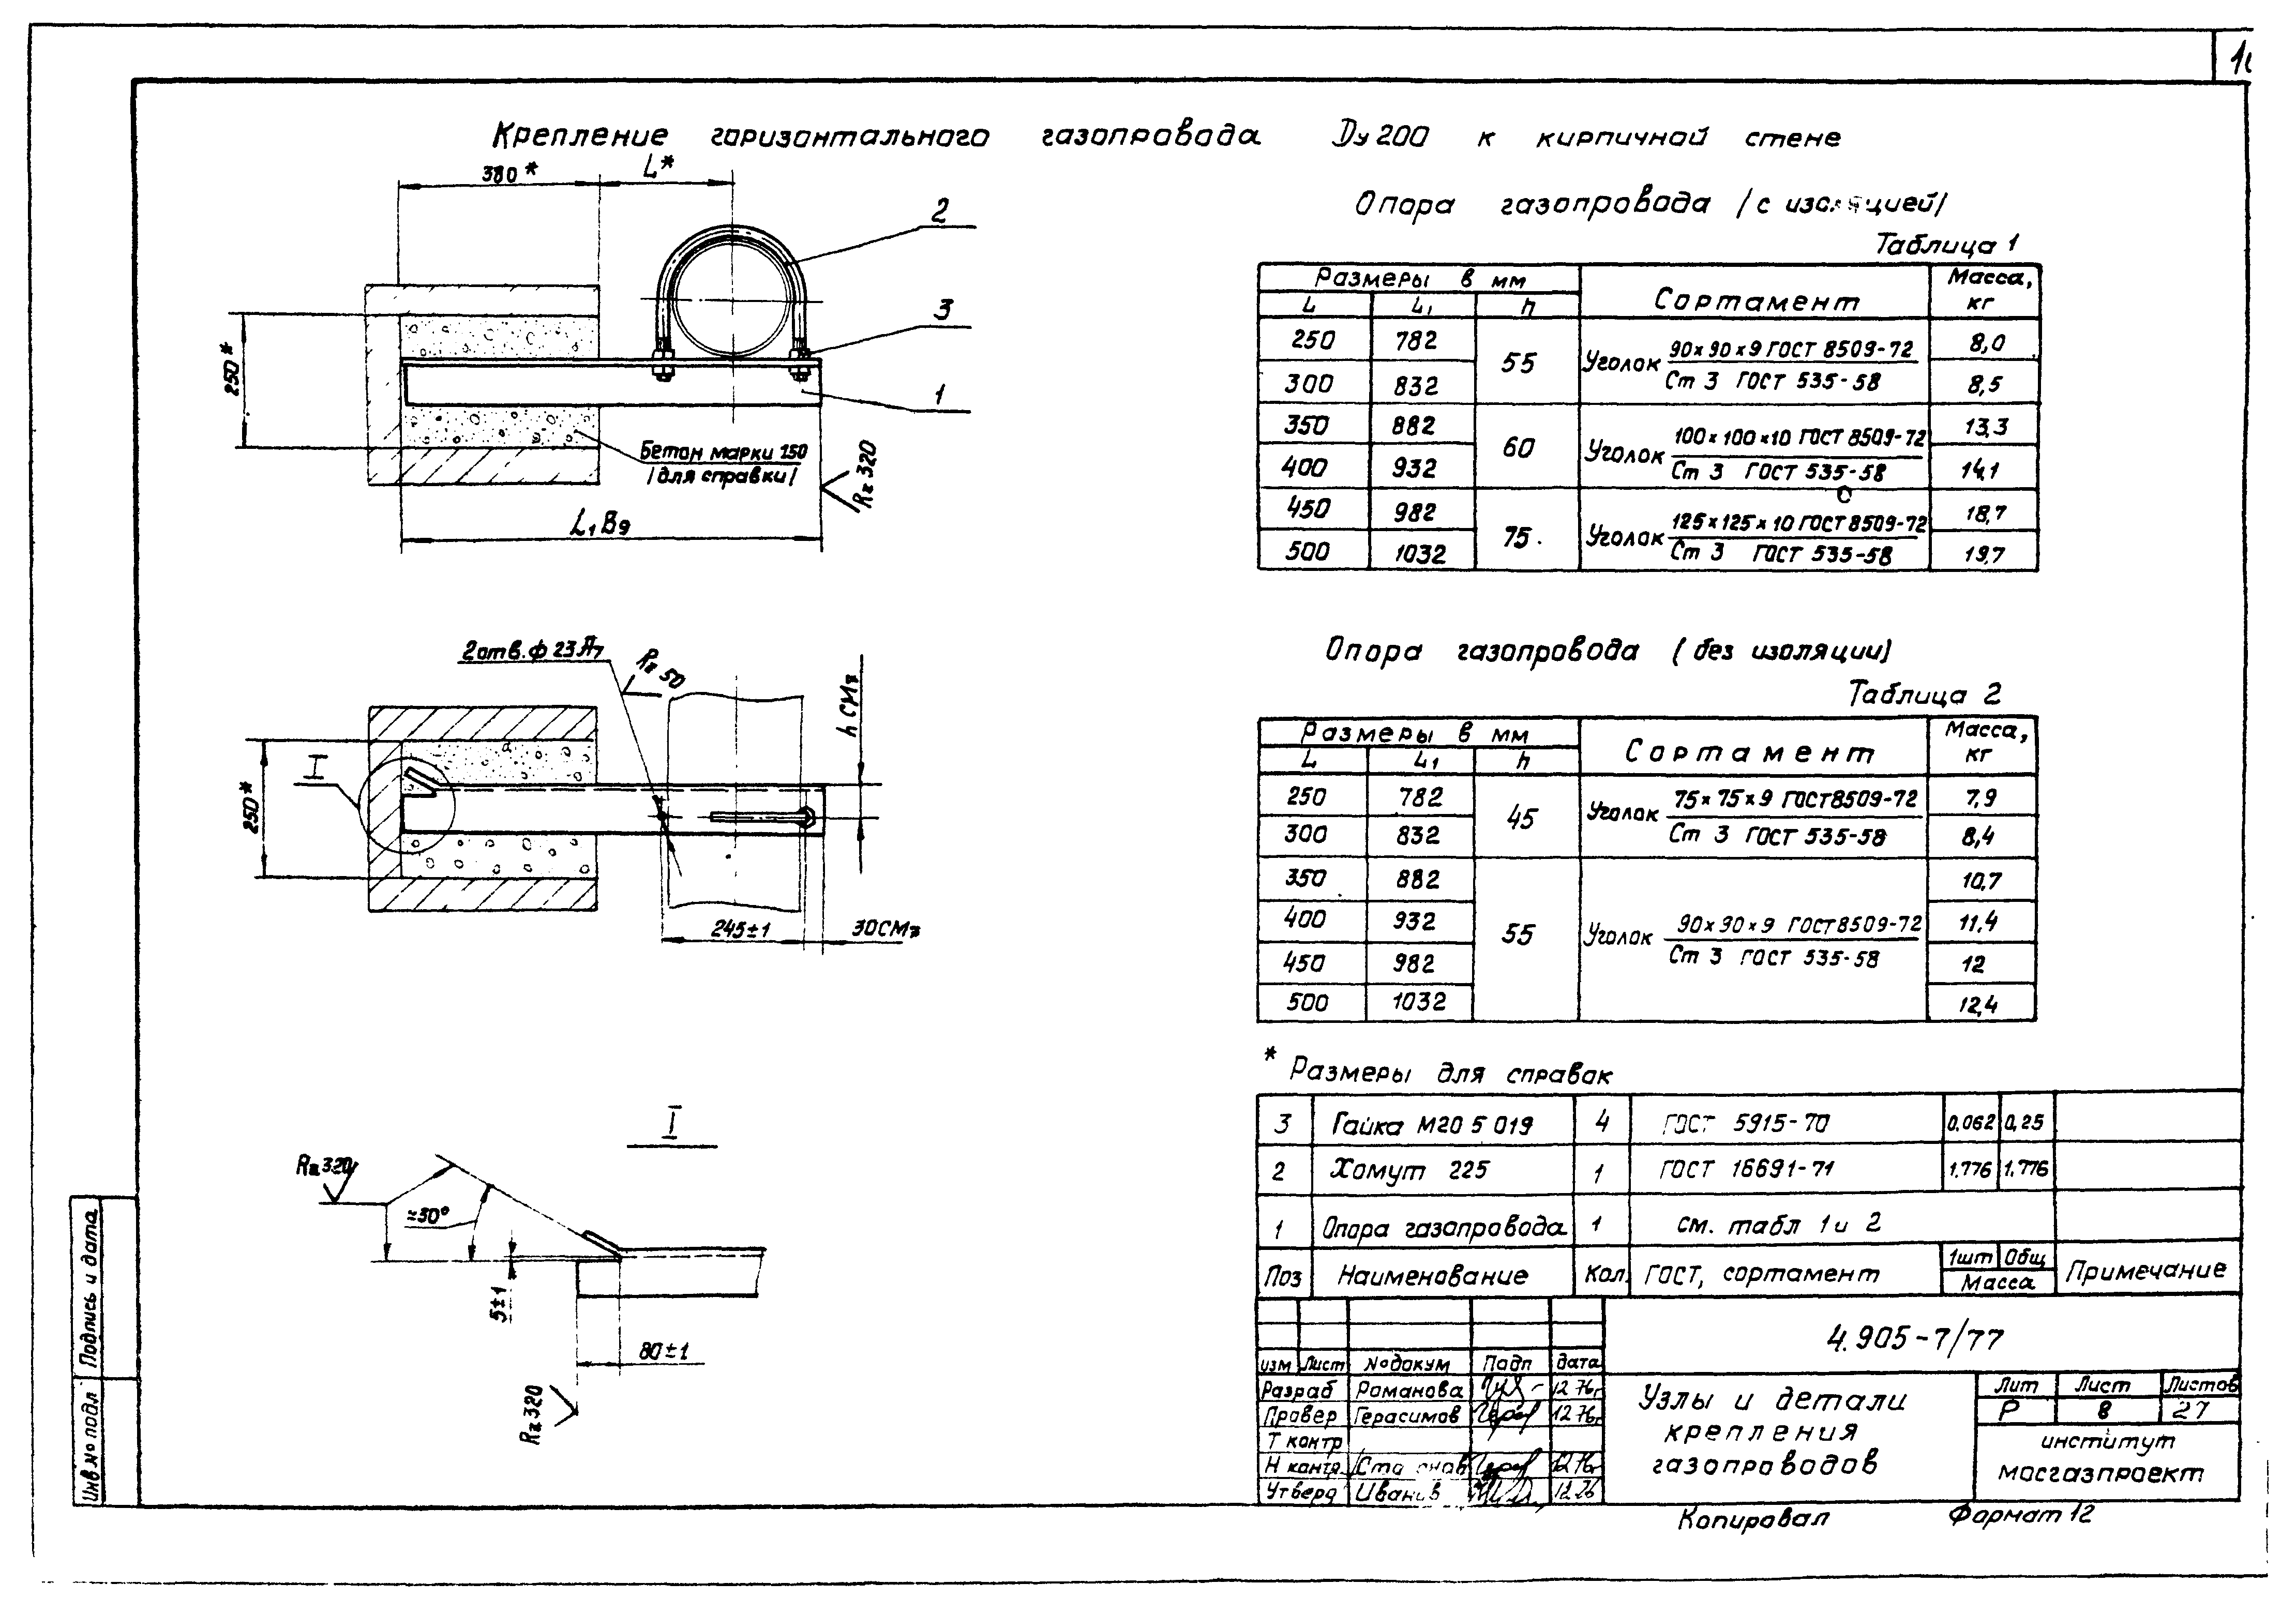 Крепление горизонтального газопровода Dу 200 к кирпичной стене
380*
L*
2
3
1
250*
Бетон марки 150
/для справки/
Rz 320
L₁ В9
Опора газопровода /с изоляцией/
Таблица 1
Размеры в мм Сортамент Масса, кг
L L₁ h
250 782 55 Уголок 90×90×9 ГОСТ 8509-72 / Ст 3 ГОСТ 535-58 8,0
300 832 8,5
350 882 60 Уголок 100×100×10 ГОСТ 8509-72 / Ст 3 ГОСТ 535-58 13,3
400 932 14,1
450 982 75 Уголок 125×125×10 ГОСТ 8509-72 / Ст 3 ГОСТ 535-58 18,7
500 1032 19,7
2 отв. ф 23 А7
Rz 50
h СМ7
I
250*
245±1
30СМ7
Опора газопровода (без изоляции)
Таблица 2
Размеры в мм Сортамент Масса, кг
L L₁ h
250 782 45 Уголок 75×75×9 ГОСТ 8509-72 / Ст 3 ГОСТ 535-58 7,9
300 832 8,4
350 882 55 Уголок 90×90×9 ГОСТ 8509-72 / Ст 3 ГОСТ 535-58 10,7
400 932 11,4
450 982 12
500 1032 12,4
* Размеры для справок
I
Rz 320
≈30°
5±1
80±1
Rz 320
3 Гайка М20 5 019 4 ГОСТ 5915-70 0,062 0,25
2 Хомут 225 1 ГОСТ 16691-71 1,776 1,776
1 Опора газопровода 1 см. табл 1 и 2
Поз Наименование Кол. ГОСТ, сортамент 1шт Общ Масса Примечание
4.905-7/77
изм Лист №докум Подп дата
Разраб Романова 12 76г
Провер Герасимов 12 76г
Т контр
Н контр 12 76г
Утверд Иванов 12 76
Узлы и детали
крепления
газопроводов
Лит Лист Листов
Р 8 27
институт
мосгазпроект
Копировал Формат 12
Подпись и дата
Инв № подл